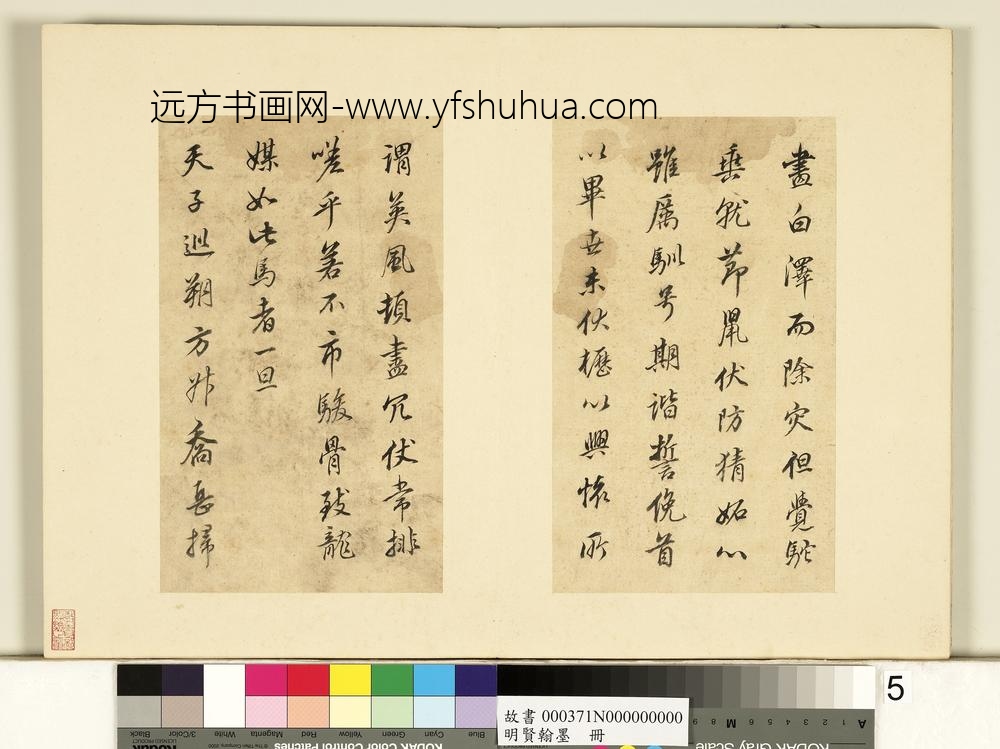 远方书画网-www.yfshuhua.com
畫白澤而除灾但覺駝
垂就節鼠伏防猜妬心
雖厲馴号期諧誓俛首
以畢世未伏櫪以興懷所
謂英風頓盡冗仗常排
嗟乎若不市駿骨致龍
媒如此馬者一旦
天子巡朔方升喬岳掃
5
故書 000371N000000000
明賢翰墨 冊
KODAK Color Control Patches
Kodak
Blue
Cyan
Green
Yellow
Red
Magenta
White
3/Color
Black
KODAK Gray Scale
A 1 2 3 4 5 6 M 8 9